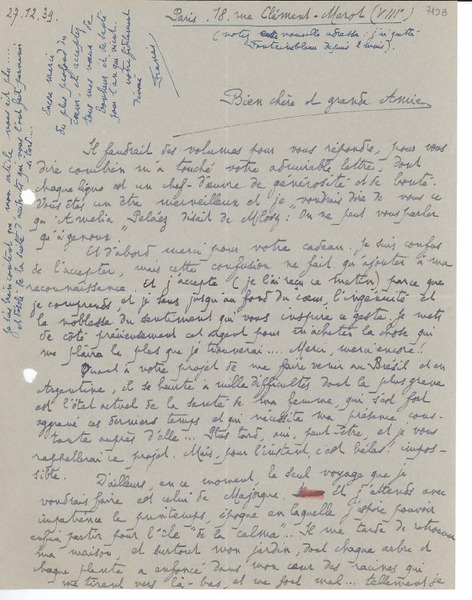 27.12.39.
Paris, 18, rue Clément-Marot (VIIIe)
7128
(notez cette nouvelle adresse: j'ai quitté
Fontainebleau depuis 2 mois).
Encore merci
du plus profond du
cœur, et acceptez
tous mes vœux de
bonheur et de santé
pour l'an qui vient.
votre
Francis
Je suis bien content que mon article vous ait plu....
Bien chère et grande Amie
Il faudrait des volumes pour vous répondre, pour vous
dire combien m'a touché votre admirable lettre. Dont
chaque ligne est un chef-d'œuvre de générosité et de bonté.
Vous êtes un être merveilleux et je voudrais dire de vous ce
qu'Amelia Peláez disait de Milosz: On ne peut vous parler
qu'à genoux.
Et d'abord merci pour votre cadeau. Je suis confus
de l'accepter, mais cette confusion ne fait qu'ajouter à ma
reconnaissance. Et j'accepte (je l'ai reçu ce matin) parce que
je comprends et je sens jusqu'au fond du cœur l'ingénuité et
la noblesse du sentiment qui vous inspire ce geste. Je mets
de côté précieusement cet argent pour m'acheter la chose qui
me plaira le plus que je trouverai.... Merci, merci encore!!
Quant à votre projet de me faire venir au Brésil et en
Argentine, il se heurte à mille difficultés dont la plus grave
est l'état actuel de la santé de ma femme, qui s'est fort
aggravé ces derniers temps et qui nécessite ma présence cons-
tante auprès d'elle... Plus tard, oui, peut-être, et je vous
rappellerai ce projet. Mais, pour l'instant, c'est hélas! impos-
sible.
D'ailleurs, en ce moment, le seul voyage que je
voudrais faire est celui de Majorque, et j'attends avec
impatience le printemps, époque en laquelle j'espère pouvoir
enfin partir pour l'île "de la calma"... Il me tarde de retrouver
ma maison, et surtout mon jardin, dont chaque arbre et
chaque plante a enfoncé dans mon cœur des racines qui
me tirent vers là-bas, et me font mal... tellement je